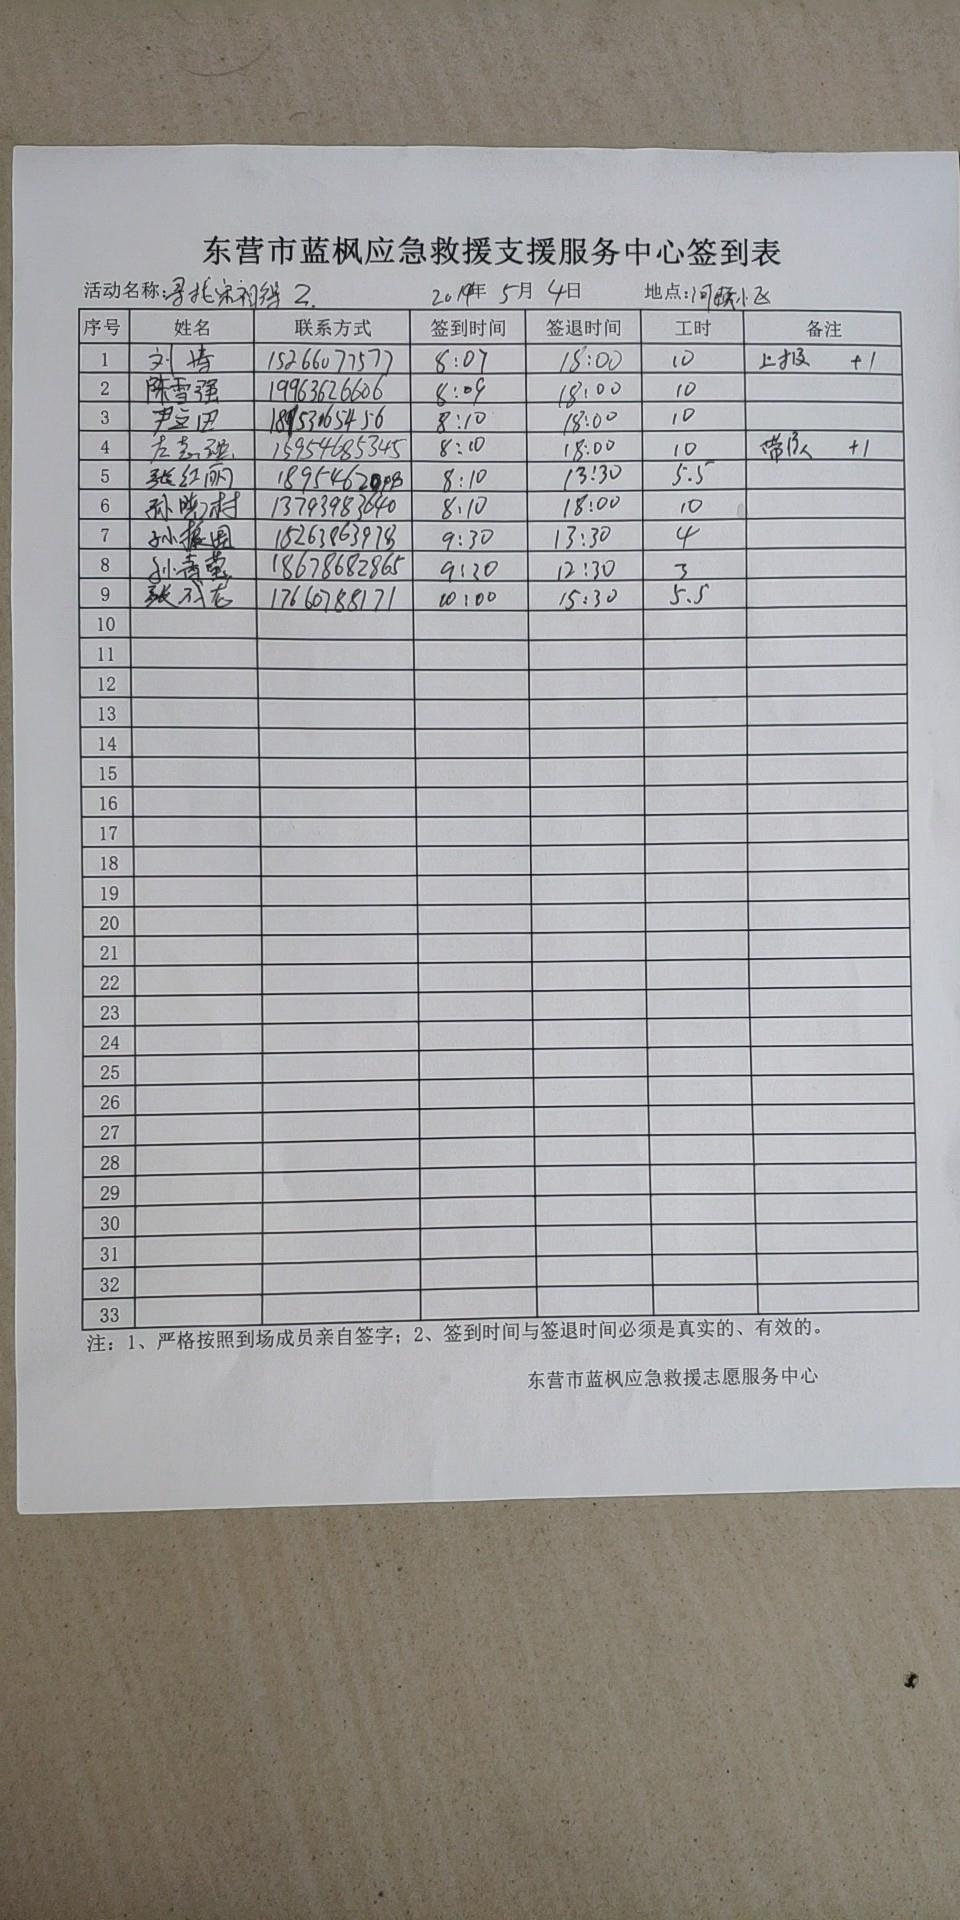 东营市蓝枫应急救援支援服务中心签到表
活动名称:寻找宋祖得 2. 2019年 5月 4日 地点:河颐小区
序号 姓名 联系方式 签到时间 签退时间 工时 备注
1 刘涛 15266077577 8:07 18:00 10 上报 +1
2 陈雪强 19963626606 8:09 18:00 10
3 尹立田 18953065456 8:10 18:00 10
4 左志强 15954685345 8:10 18:00 10 带队 +1
5 张红丽 8:10 13:30 5.5
6 孙晓村 13793983640 8:10 18:00 10
7 孙振国 15263863978 9:30 13:30 4
8 孙青莹 18678682865 9:30 12:30 3
9 张 17660788171 10:00 15:30 5.5
10
11
12
13
14
15
16
17
18
19
20
21
22
23
24
25
26
27
28
29
30
31
32
33
注：1、严格按照到场成员亲自签字；2、签到时间与签退时间必须是真实的、有效的。
东营市蓝枫应急救援志愿服务中心